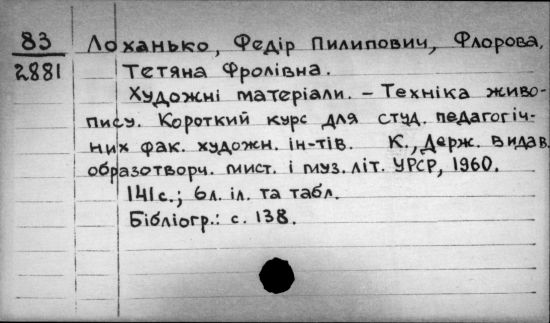 83 Лоханько, Федір Пилипович, Флорова,
2881 Тетяна Фролівна.
Художні матеріали. – Техніка живо-
пису. Короткий курс для студ. педагогіч-
них фак. художн. ін-тів. К., Держ. видав.
образотворч. мист. і муз. літ. УРСР, 1960.
141 с.; 6 л. іл. та табл.
Бібліогр.: с. 138.